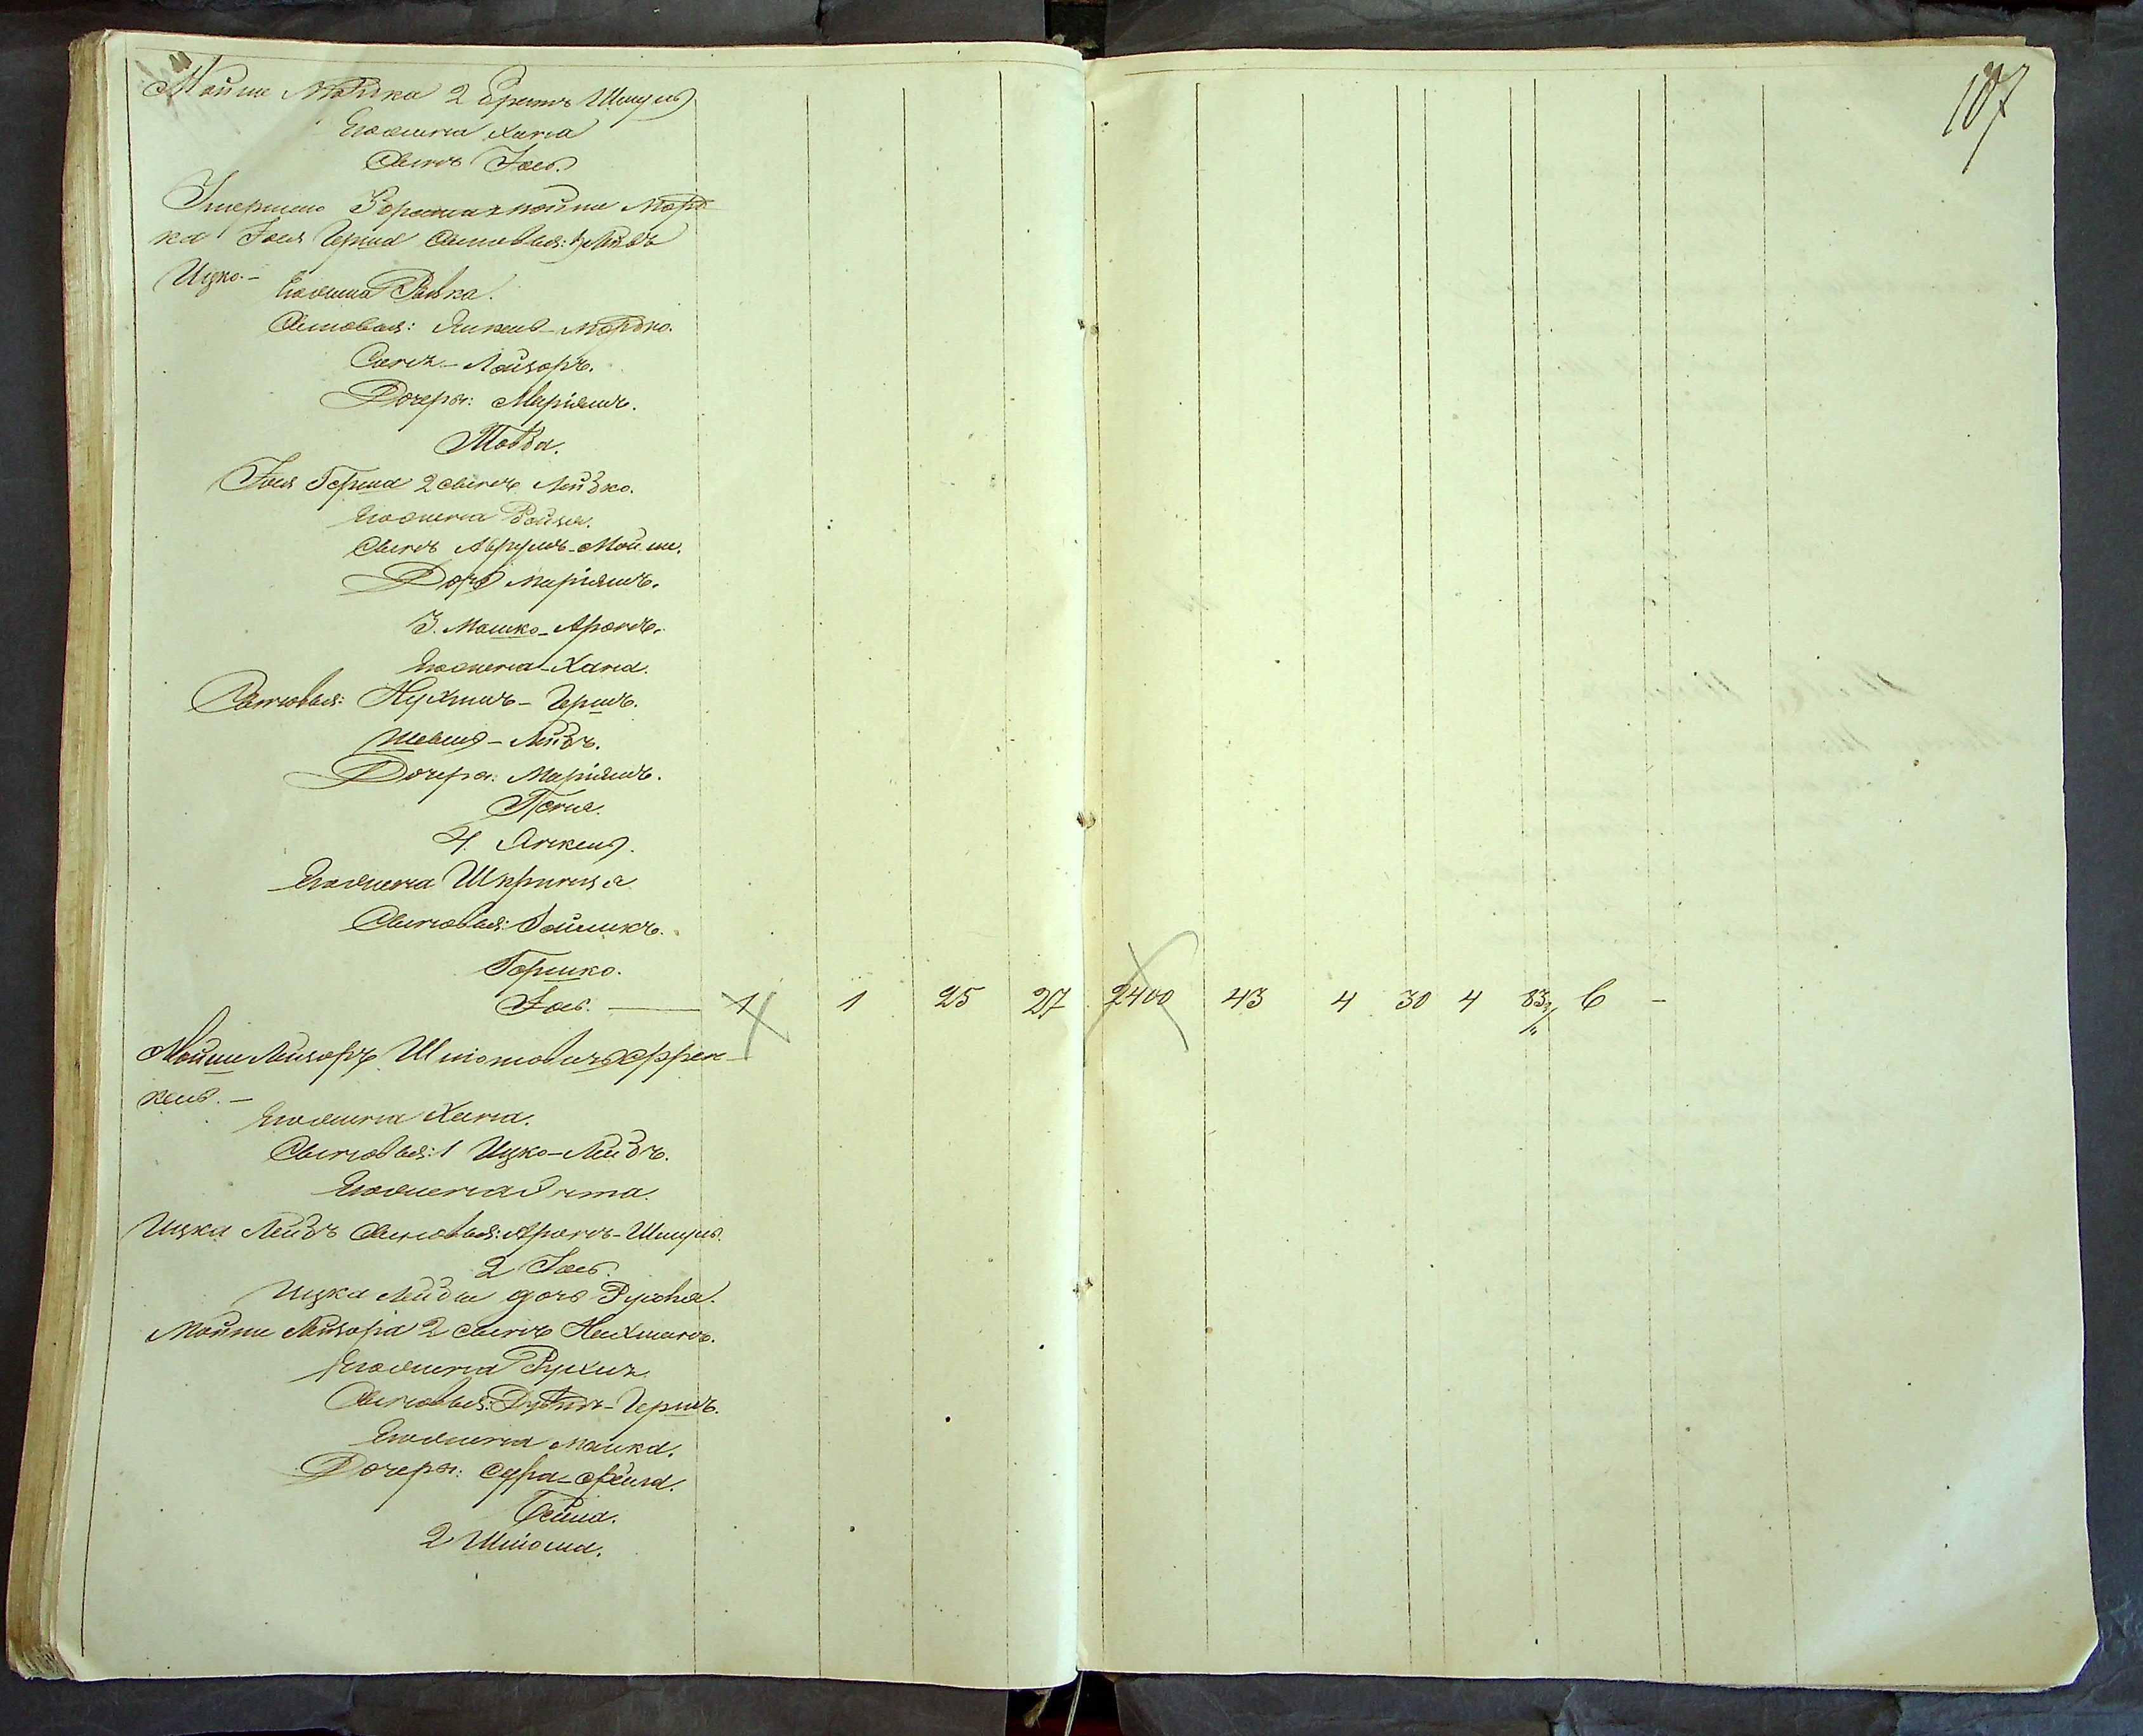 107
Мойше Мордка 2 братъ Шмуль
Его жена Хана
Сынъ Іось.
Умершаго брата МойшеМорд
ка Іося Герша сыновья: 1, Лейбъ
Ицко.-
Его жена Ривка.
Сыновья: Янкель-Мордко.
Сынъ-Лойзоръ.
Дочери: Маріямъ.
Товба.
Іося Герша 2 сынъ Лейбко.
Его жена Ройза.
Сынъ Аврумъ-Мойше.
Дочь Маріямъ.
3. Мошко-Аронъ.
Его жена-Хана.
Сыновья: Нухимъ-Гершъ.
Шевель-Лейбъ.
Дочери: Маріямъ.
Песя.
4. Янкель.
Его жена Шпринца
Сыновья:
Гершко.
Іось. — 1 1 25 27 2400 43 4 30 4 83 6 -
Мойше Лейзоръ Шліомовичъ Френ-
кель.-
Его жена Хана.
Сыновья: 1 Ицко-Лейбъ.
Его жена Ента.
Ицка Лейбъ сыновья: Аронъ-Шмуль.
2 Іось.
Ицка Лейбы дочь Рухля.
Мойше Лейзора 2 сынъ Нахманъ.
Его жена Рухля
Сыновья: Дувидъ-Гершъ.
Его жена Малка.
Дочери: Сура-Фейга.
Бейла.
2 Шліома.